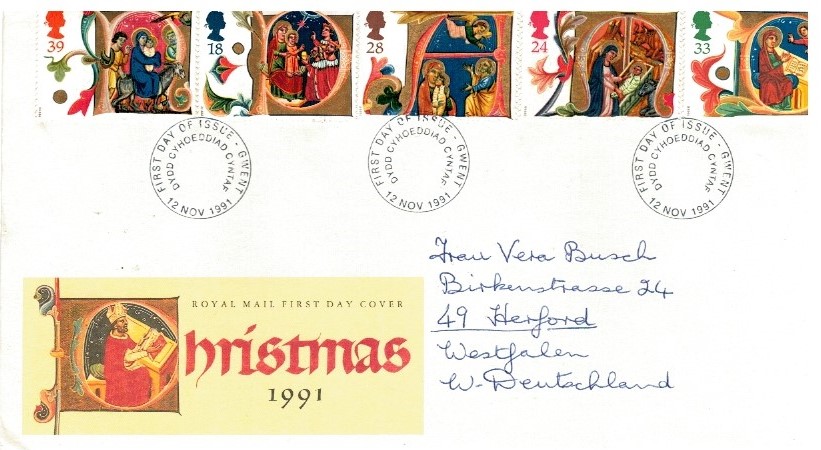 39
18
28
24
33
FIRST DAY OF ISSUE · GWENT
DYDD CYHOEDDIAD CYNTAF
12 NOV 1991
FIRST DAY OF ISSUE · GWENT
DYDD CYHOEDDIAD CYNTAF
12 NOV 1991
FIRST DAY OF ISSUE · GWENT
DYDD CYHOEDDIAD CYNTAF
12 NOV 1991
Frau Vera Busch
Birkenstrasse 24
49 Herford
Westfalen
W-Deutschland
ROYAL MAIL FIRST DAY COVER
Christmas
1991